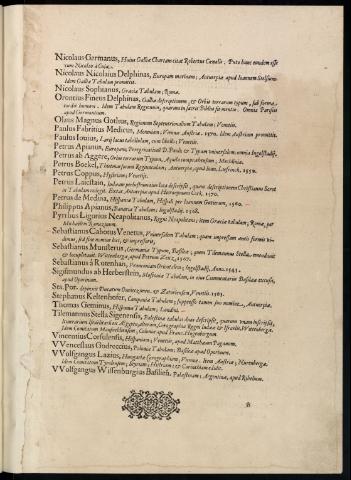 Nicolaus Germanus, Huius Galliæ Chartam citat Robertus Cænalis; Puto hunc eundem esse
cum Nicolao à Cusa.
Nicolaus Nicolaius Delphinas, Europam marinam; Antverpiæ apud Ioannem Steelsium.
Idem Galliæ Tabulam promittit.
Nicolaus Sophianus, Græciæ Tabulam; Romæ.
Orontius Fineus Delphinas, Galliæ descriptionem, & Orbis terrarum typum, sub forma
cordis humani. Idem Tabulam Regionum, quarum in sacris Bibliis fit mentio. Omnia Parisiis
Olaus Magnus Gothus, Regionum Septentrionalium Tabulam; Venetiis.
Paulus Fabritius Medicus, Moraviam; Viennæ Austriæ. 1570. Idem Austriam promittit.
Paulus Iovius, Larii lacus tabellam, cum libello; Venetiis.
Petrus Apianus, Europam; Peregrinationē D. Pauli: & Typum universalem; omnia Ingolstadij.
Petrus ab Aggere, Orbis terrarum Typum, Mechliniæ.
Petrus Boekel, Thietmarsorum Regiunculam; Antverpiæ, apud Ioan. Liefrinck, 1559.
Petrus Coppus, Histriam; Venetijs.
Petrus Laicstain, Iudæam perlustravit in loco descripsit, quam descriptionem Christianus Scrot
in Tabulam redegit. Extat Antverpiæ apud Hieronymum Cock, 1570.
Petrus de Medina, Hispaniæ Tabulam, Hispali per Ioannem Gotterum, 1560.
Philippus Apianus, Bavariæ Tabulam; Ingolstadij. 1568.
Pyrrhus Ligorius Neapolitanus, Regni Neapolitani; item Græciæ tabulam; Romæ, per
Michaëlem Tramezinum.
Sebastianus Cabotus Venetus, Universalem Tabulam; quam impressam æneis formis vidimus,
sed sine nomine loci, & impressoris.
Sebastianus Munsterus, Germaniæ Typum, Basileæ; quem Tilemannus Stella, emendavit
& locupletavit. Wittenbergæ, apud Petrum Zeitz, 1567.
Sebastianus à Rotenhan, Franconiam Orientalem; Ingolstadij, Anno. 1533.
Sigismundus ab Herberstein, Moscoviæ Tabulam, in eius Commentariis Basileæ excusis,
apud Oporinum.
Sta. Por. depinxit Ducatus Osviecimen. & Zatoriensem, Venetiis. 1563.
Stephanus Keltenhofer, Campaniæ Tabulam; suppresso tamen suo nomine, Antverpiæ.
Thomas Geminus, Hispaniæ Tabulam; Londini.
Tilemannus Stella Sigenensis, Palestinæ tabulas duas descripsit, quarum unam inscripsit,
Itinerarium Israëlitarum ex Ægypto, alteram, Regni Iudæ & Israëlis, Wittenbergæ.
Idem Comitatum Mansfeldensem; Coloniæ apud Franc. Hogenbergum.
Vincentius Corsulensis, Hispaniam; Venetiis, apud Matthæum Paganum.
VVenceslaus Godreccius, Poloniæ Tabulam; Basileæ apud Oporinum.
VVolfgangus Lazius, Hungariæ Chorographiam, Viennæ. Item Austriæ; Norenbergæ.
Idem Comitatum Tyrolensem; Styriam; Histriam; & Carinthiam &c.
VVolfgangus VVissenburgius Basiliens. Palestinam; Argentinæ, apud Rihelium.
B